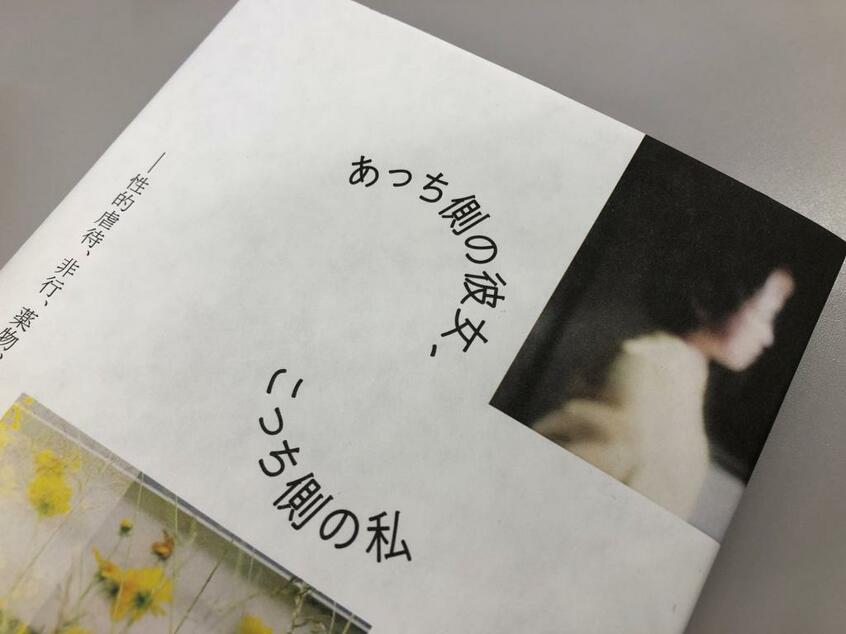 あっち側の彼女、
こっち側の私
―性的虐待、非行、薬物、